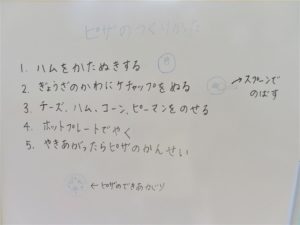 ピザのつくりかた
1. ハムをかたぬきする
2. ぎょうざのかわにケチャップをぬる
→スプーンで
のばす
3. チーズ、ハム、コーン、ピーマンをのせる
4. ホットプレートでやく
5. やきあがったらピザのかんせい
←ピザのできあがり